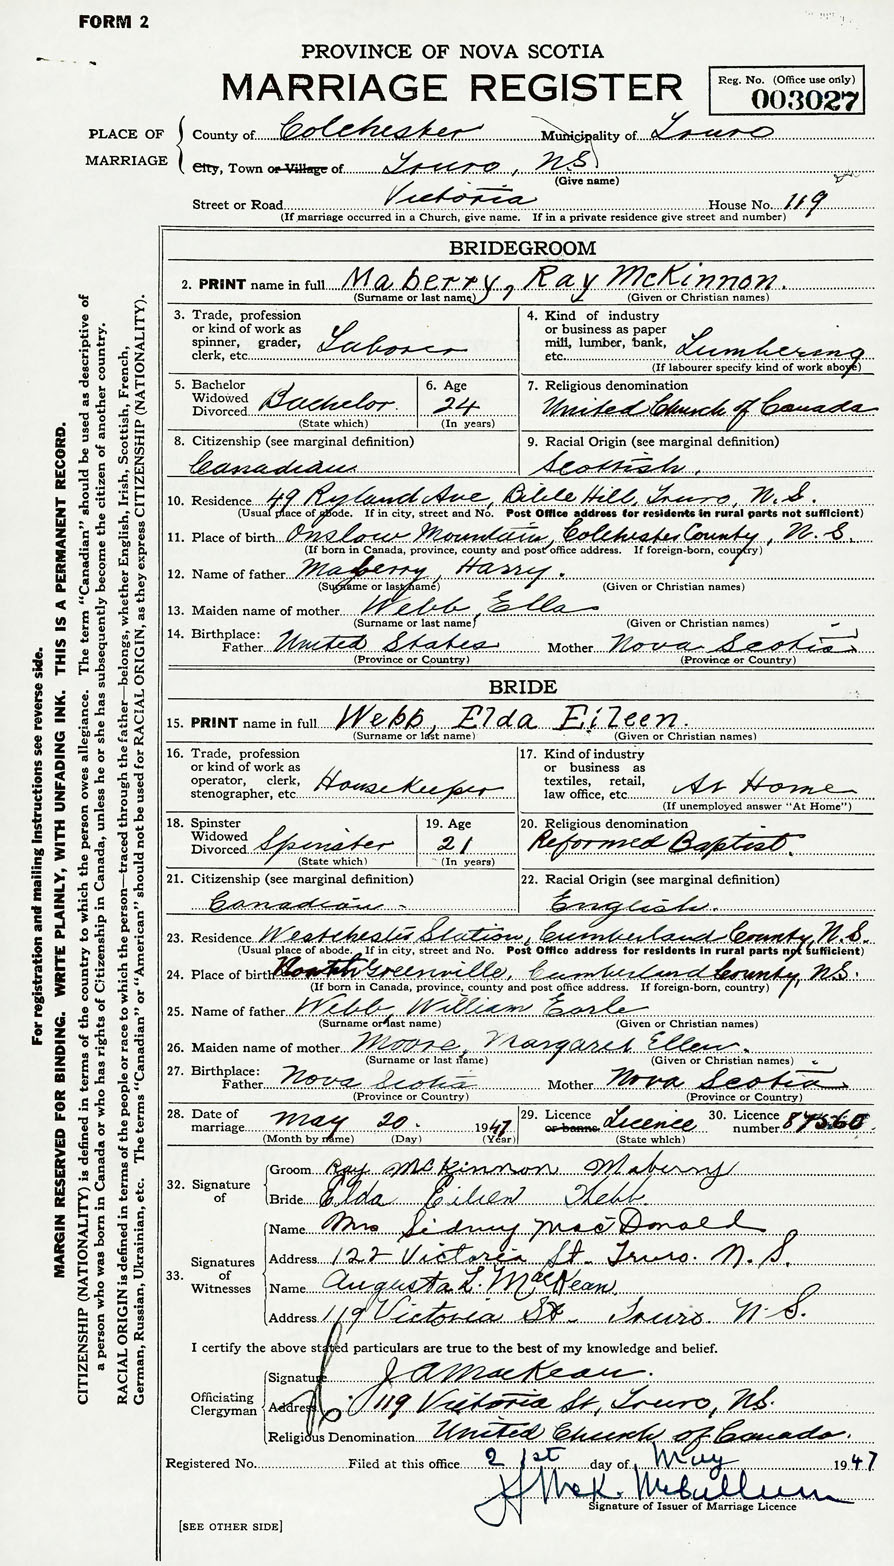 FORM 2
PROVINCE OF NOVA SCOTIA
MARRIAGE REGISTER
Reg. No. (Office use only)
003027
PLACE OF MARRIAGE
County of Colchester Municipality of Truro
City, Town or Village of Truro, NS
(Give name)
Street or Road Victoria House No. 119
(If marriage occurred in a Church, give name. If in a private residence give street and number)
BRIDEGROOM
2. PRINT name in full Maberry, Ray McKinnon.
(Surname or last name) (Given or Christian names)
3. Trade, profession or kind of work as spinner, grader, clerk, etc. Laborer
4. Kind of industry or business as paper mill, lumber, bank, etc. Lumbering
(If labourer specify kind of work above)
5. Bachelor Widowed Divorced Bachelor.
(State which)
6. Age 24
(In years)
7. Religious denomination
United Church of Canada
8. Citizenship (see marginal definition)
Canadian
9. Racial Origin (see marginal definition)
Scottish.
10. Residence 49 Ryland Ave, Bible Hill, Truro, N.S.
(Usual place of abode. If in city, street and No. Post Office address for residents in rural parts not sufficient)
11. Place of birth Onslow Mountain, Colchester County, N.S.
(If born in Canada, province, county and post office address. If foreign-born, country)
12. Name of father Maberry, Harry.
(Surname or last name) (Given or Christian names)
13. Maiden name of mother Webb, Ella
(Surname or last name) (Given or Christian names)
14. Birthplace: Father United States Mother Nova Scotia
(Province or Country) (Province or Country)
BRIDE
15. PRINT name in full Webb, Elda Eileen.
(Surname or last name) (Given or Christian names)
16. Trade, profession or kind of work as operator, clerk, stenographer, etc. Housekeeper
17. Kind of industry or business as textiles, retail, law office, etc. At Home
(If unemployed answer "At Home")
18. Spinster Widowed Divorced Spinster
(State which)
19. Age 21
(In years)
20. Religious denomination
Reformed Baptist.
21. Citizenship (see marginal definition)
Canadian
22. Racial Origin (see marginal definition)
English.
23. Residence Westchester Station, Cumberland County, N.S.
(Usual place of abode. If in city, street and No. Post Office address for residents in rural parts not sufficient)
24. Place of birth Greenville, Cumberland County, NS.
(If born in Canada, province, county and post office address. If foreign-born, country)
25. Name of father Webb, William Earle
(Surname or last name) (Given or Christian names)
26. Maiden name of mother Moore, Margaret Ellen.
(Surname or last name) (Given or Christian names)
27. Birthplace: Father Nova Scotia Mother Nova Scotia
(Province or Country) (Province or Country)
28. Date of marriage May 20. 1947
(Month by name) (Day) (Year)
29. Licence or banns Licence
(State which)
30. Licence number 87560
32. Signature of
Groom Ray McKinnon Maberry
Bride Elda Eileen Webb
33. Signatures of Witnesses
Name Mrs Sidney MacDonald
Address 122 Victoria St. Truro. N.S.
Name Augusta L. MacKean
Address 119 Victoria St. Truro. N.S.
I certify the above stated particulars are true to the best of my knowledge and belief.
Officiating Clergyman
Signature J A MacKean.
Address 119 Victoria St, Truro, NS.
Religious Denomination United Church of Canada.
Registered No. Filed at this office 21st day of May 1947
H McK. McCullum
Signature of Issuer of Marriage Licence
[SEE OTHER SIDE]
For registration and mailing instructions see reverse side.
MARGIN RESERVED FOR BINDING. WRITE PLAINLY, WITH UNFADING INK. THIS IS A PERMANENT RECORD.
CITIZENSHIP (NATIONALITY) is defined in terms of the country to which the person owes allegiance. The term "Canadian" should be used as descriptive of
a person who was born in Canada or who has rights of Citizenship in Canada, unless he or she has subsequently become the citizen of another country.
RACIAL ORIGIN is defined in terms of the people or race to which the person—traced through the father—belongs, whether English, Irish, Scottish, French,
German, Russian, Ukrainian, etc. The terms "Canadian" or "American" should not be used for RACIAL ORIGIN, as they express CITIZENSHIP (NATIONALITY).